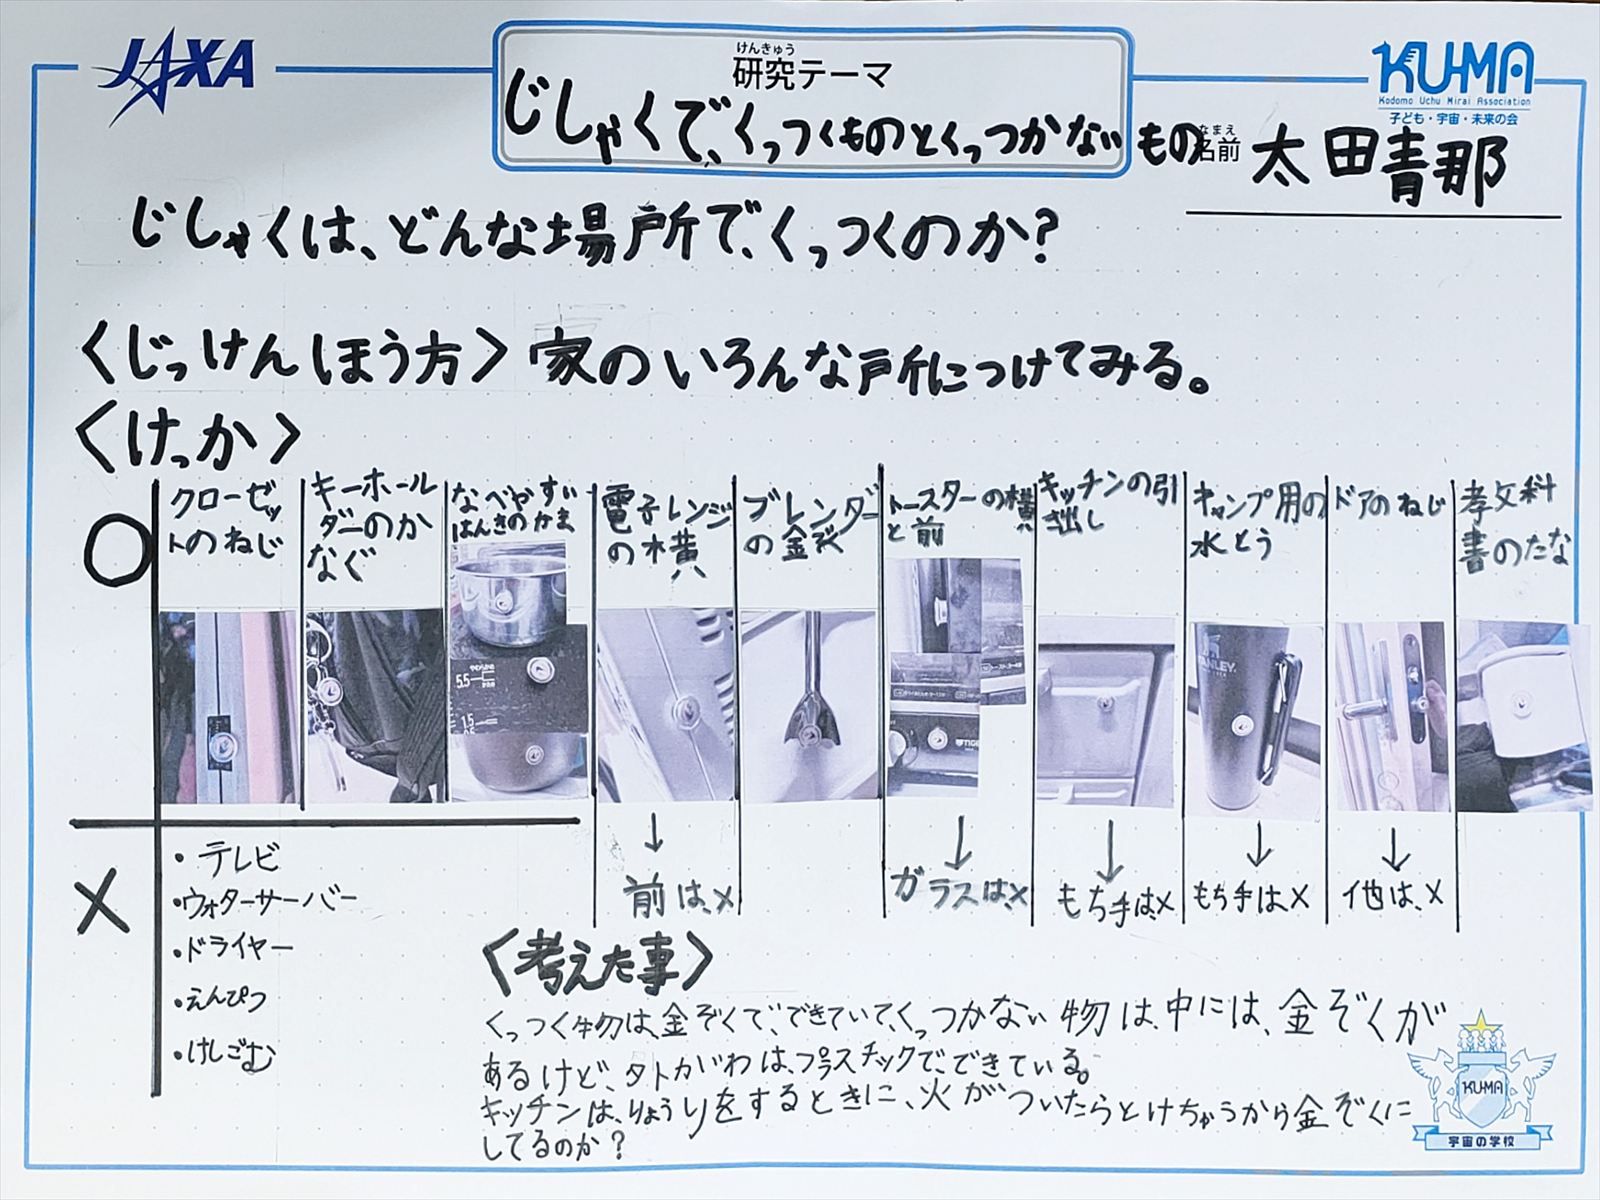 JAXA
けんきゅう
研究テーマ
じしゃくで、くっつくものとくっつかないもの
KU-MA
Kodomo Uchu Mirai Association
子ども・宇宙・未来の会
なまえ
名前 太田青那
じしゃくは、どんな場所で、くっつくのか?
〈じっけんほう方〉家のいろんな所につけてみる。
〈けっか〉
○
クローゼッ
トのねじ
キーホール
ダーのか
なぐ
なべやすい
はんきのかま
電子レンジ
の横
ブレンダー
の金ぞく
トースターの横
と前
キッチンの引
き出し
キャンプ用の
水とう
ドアのねじ
教科
書のたな
5.5
1.5
0.5
TIGER
STANLEY
↓
前は、×
↓
ガラスは、×
↓
もち手は、×
↓
もち手は、×
↓
他は、×
×
・テレビ
・ウォターサーバー
・ドライヤー
・えんぴつ
・けしごむ
〈考えた事〉
くっつく物は、金ぞくで、できていて、くっつかない物は、中には、金ぞくが
あるけど、外がわは、プラスチックで、できている。
キッチンは、りょうりをするときに、火がついたらとけちゃうから金ぞくに
してるのか?
KU-MA
宇宙の学校